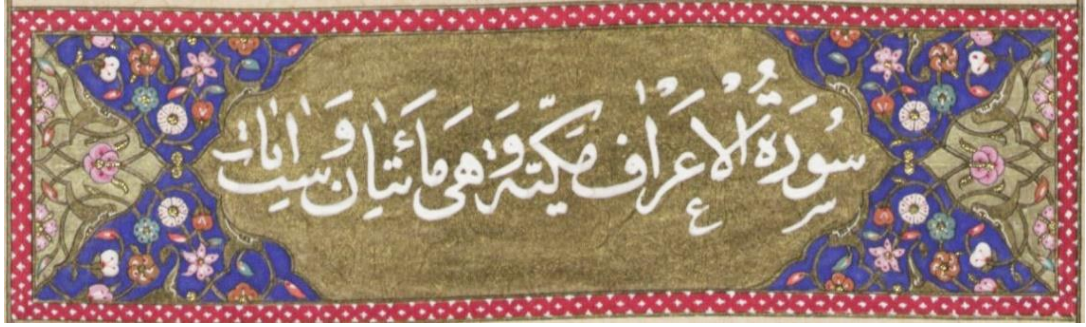 سُورَةُ الْاَعْرَافِ مَكِّيَّةٌ وَهِىَ مَائَتَانِ وَسِتُّ اٰيَاتٍ